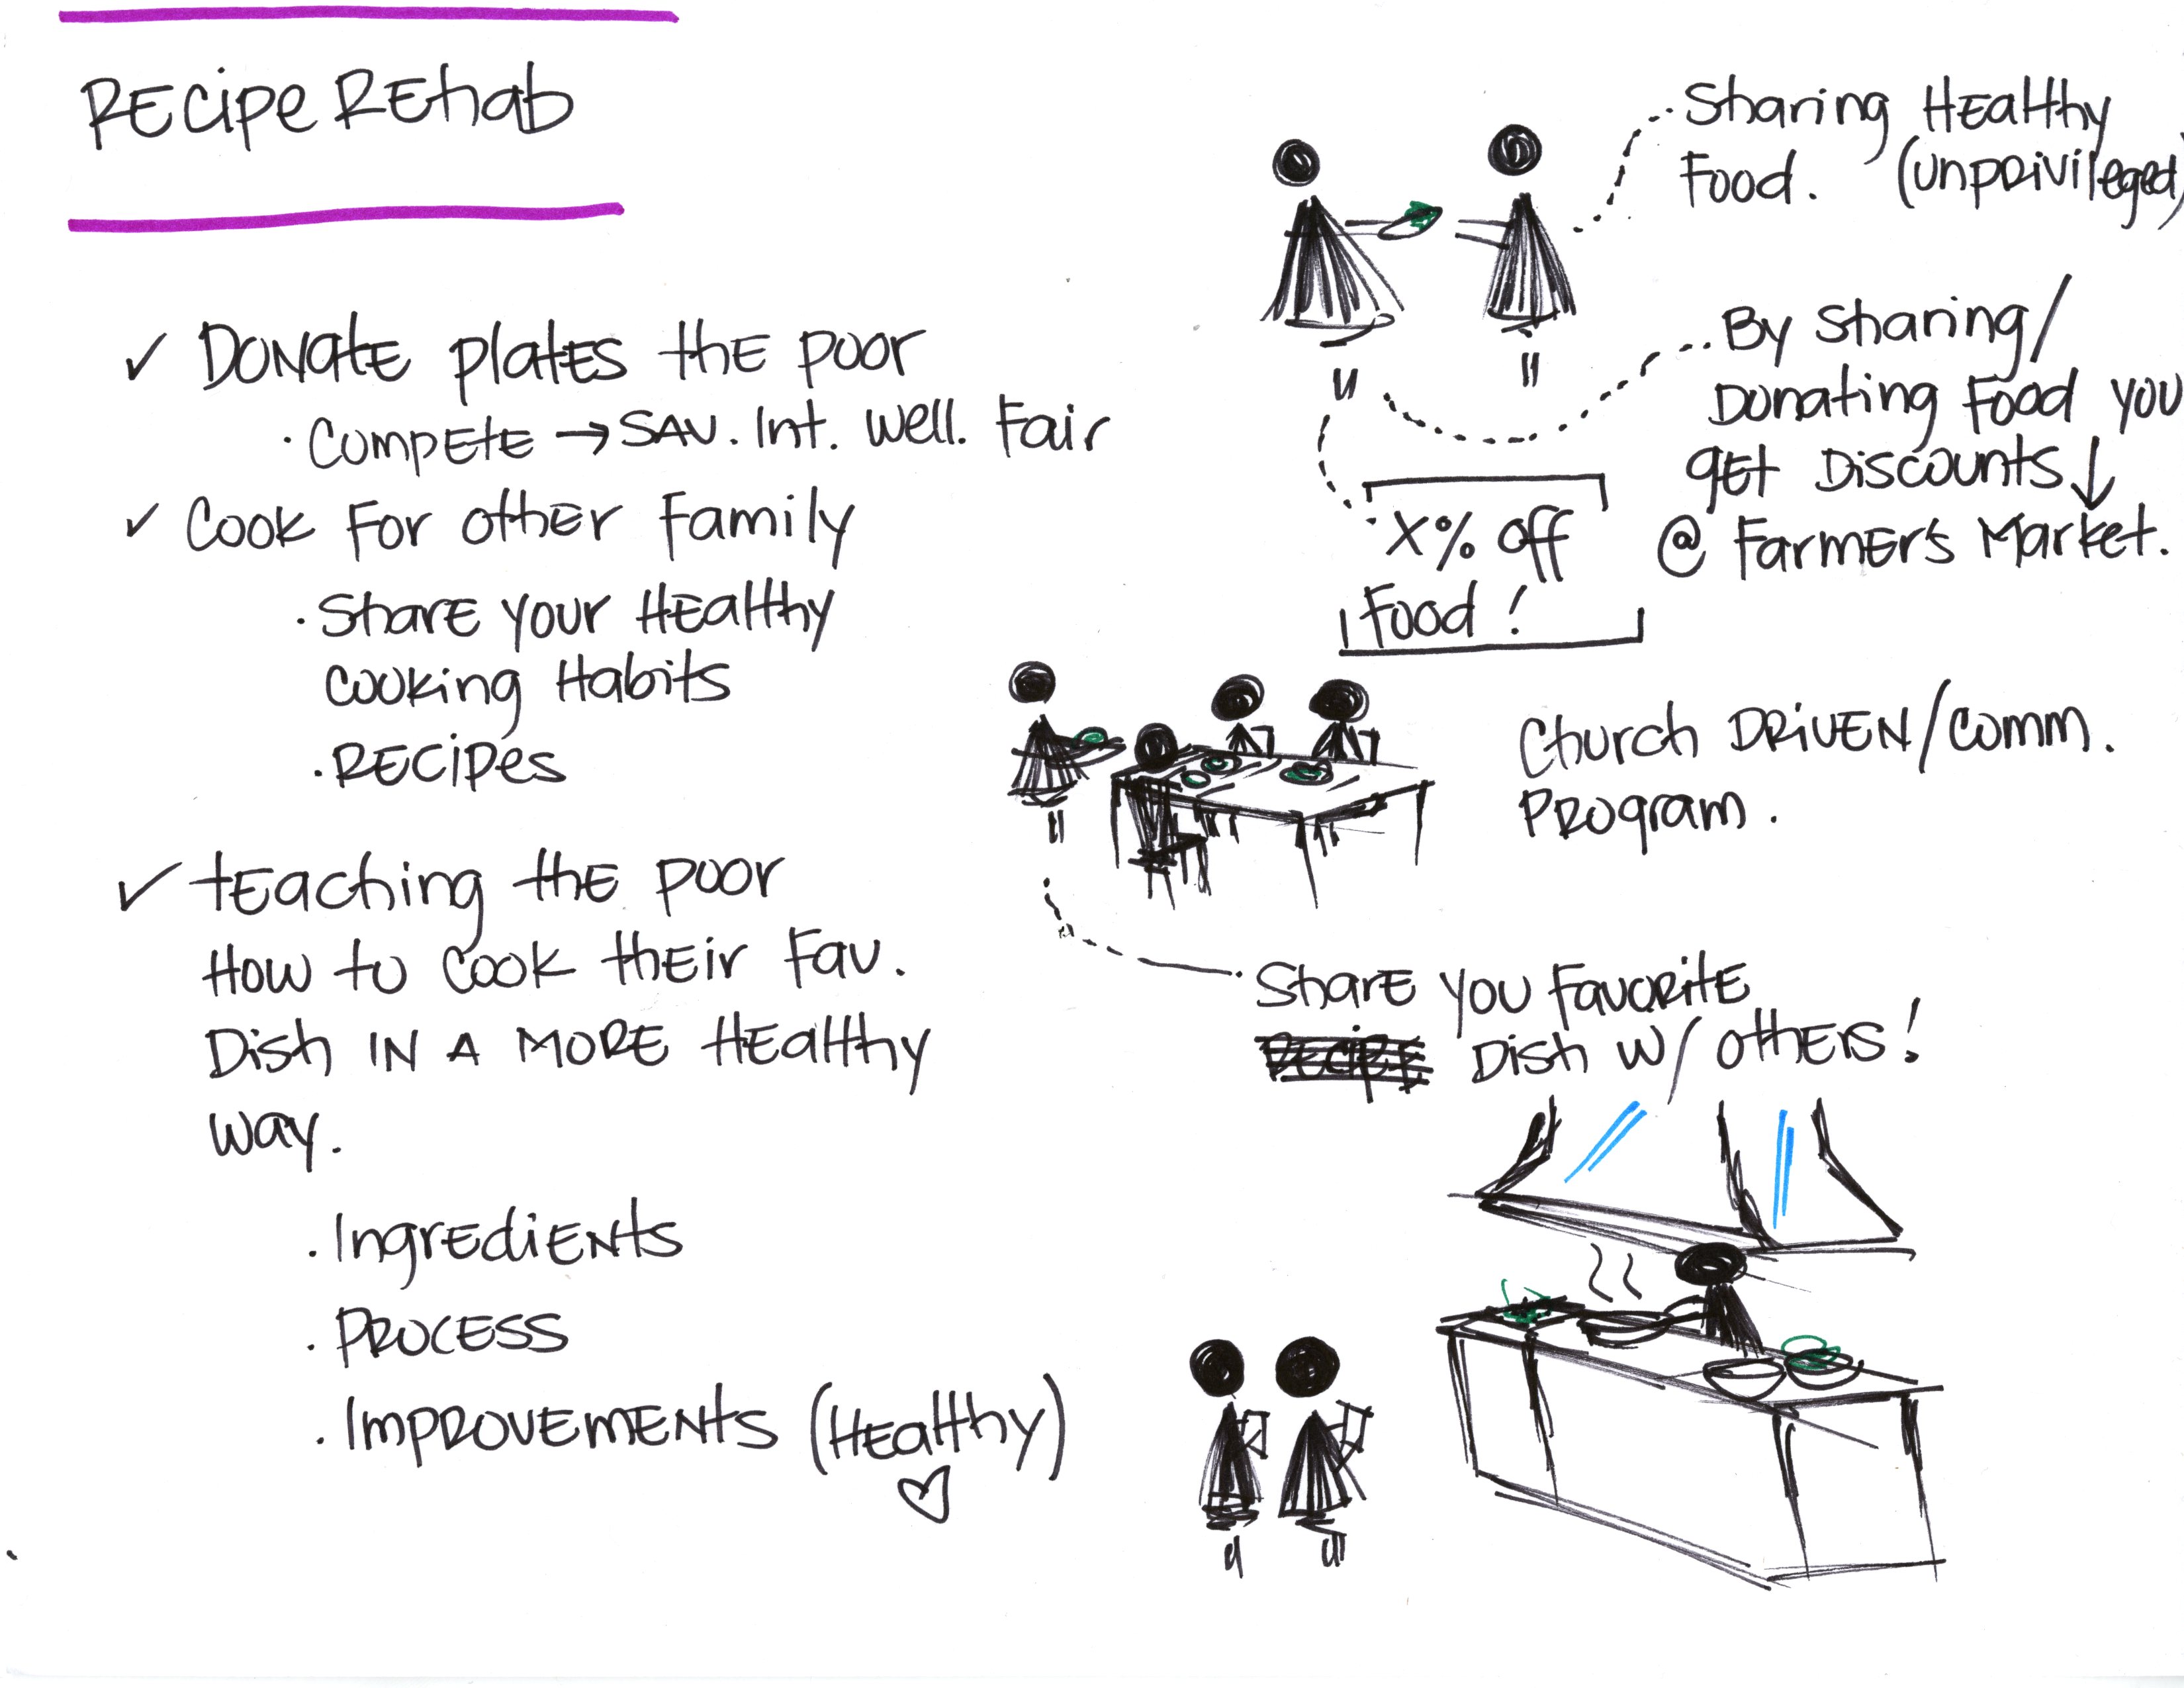 Recipe Rehab
✓ Donate plates the poor
· Compete → Sav. Int. Well. Fair
✓ Cook for other family
· Share your Healthy
Cooking Habits
· Recipes
✓ teaching the poor
How to cook their Fav.
Dish IN A MORE Healthy
way.
· Ingredients
· Process
· Improvements (Healthy)
Sharing Healthy
Food. (unprivileged)
By Sharing/
Donating Food you
get Discounts ↓
@ Farmer's Market.
X% off
Food!
Church Driven/Comm.
Program.
Share you Favorite
Recipe Dish w/ others!